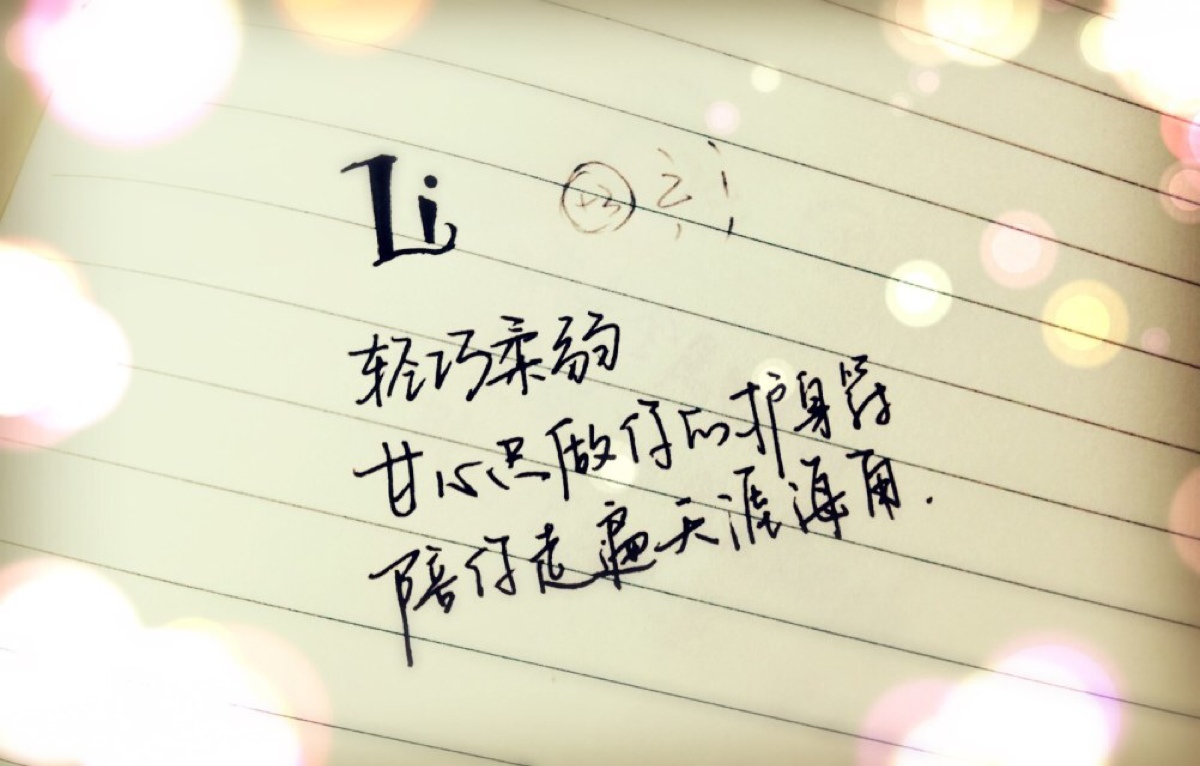 Li
轻巧柔弱
甘心只做你的护身符
陪你走遍天涯海角.